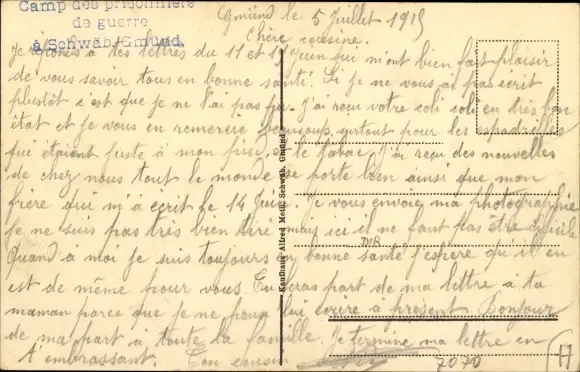 Camp des prisonniers
de guerre
à Schwäb. Gmünd.
Gmünd le 5 Juillet 1915
Chère cousine.
Je réponds à tes lettres du 11 et 17 Juin qui m'ont bien fait plaisir
de vous savoir tous en bonne santé. Si je ne vous ai pas écrit
plustôt c'est que je ne l'ai pas pu. J'ai reçu votre coli en très bon
état et je vous en remercie beaucoup surtout pour les espadrilles
qui étaient juste à mon pied, et le tabac. J'ai reçu des nouvelles
de chez nous tout le monde se porte bien ainsi que mon
frère qui m'a écrit le 14 Juin. Je vous envoie ma photographie
je ne suis pas très bien tiré mais ici il ne faut pas être difficile
Quand à moi je suis toujours en bonne santé j'espère qu'il en
est de même pour vous. Tu feras part de ma lettre à ta
maman parce que je ne peux lui écrire à présent Bonjour
de ma part à toute la famille. Je termine ma lettre en
t'embrassant. Ton cousin
Kaufhaus Alfred Meth, Schwäb. Gmünd
DIR
7070
H